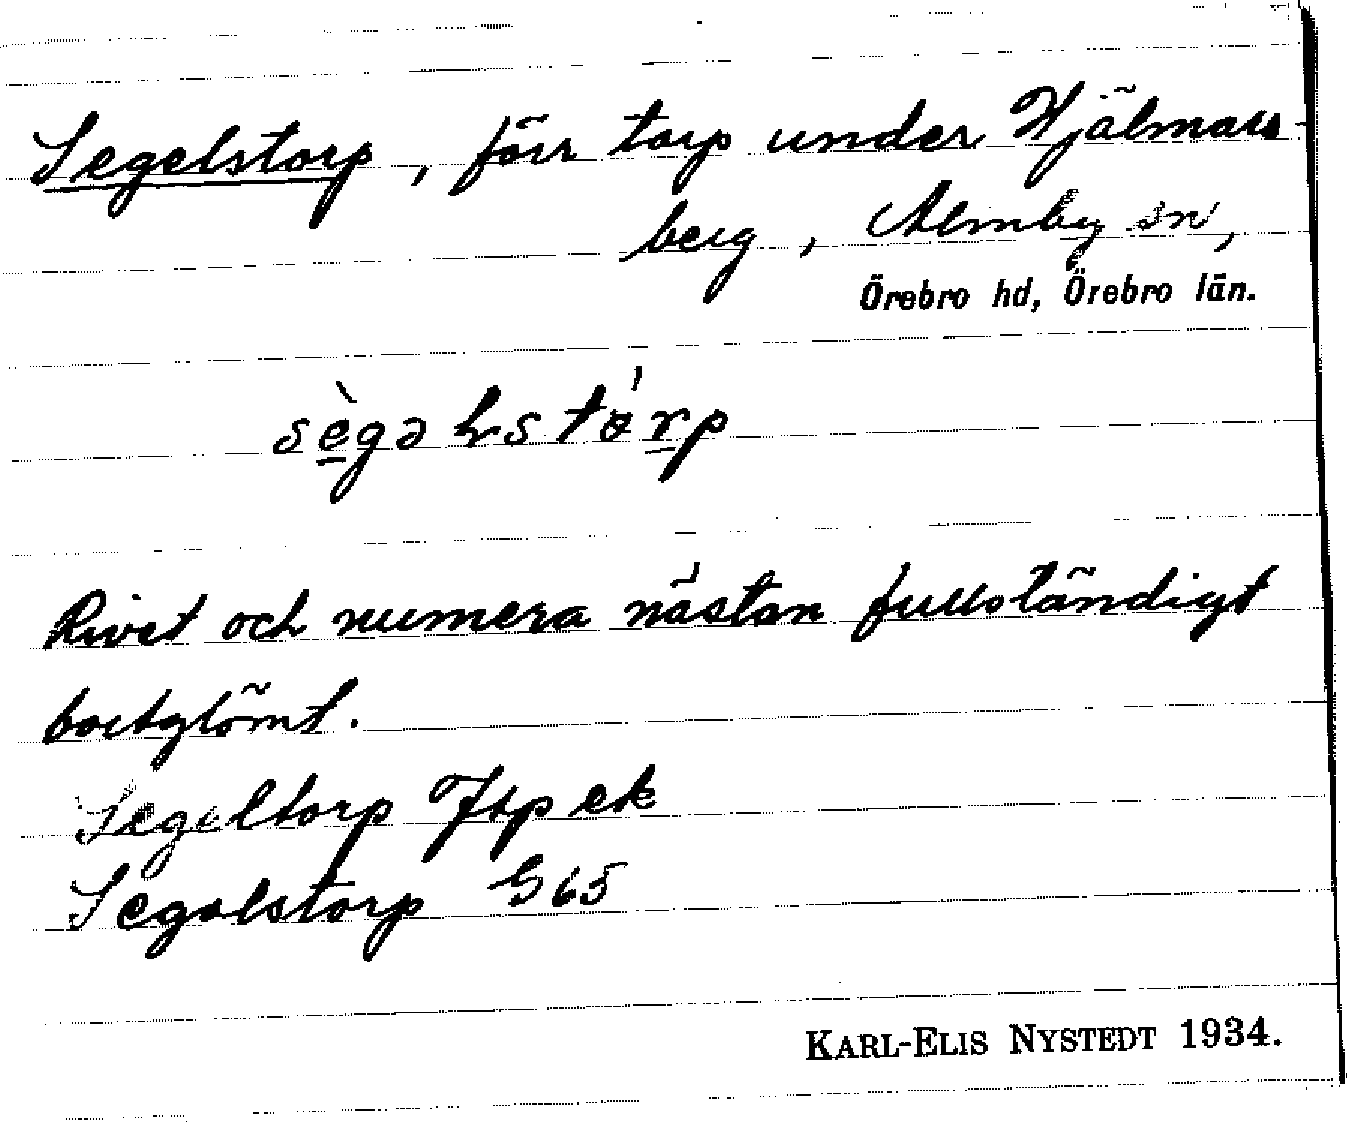 Segelstorp, förr torp under Hjälmars-
berg, Almby sn,
Örebro hd, Örebro län.
sègəlstórp
Rivet och numera nästan fullständigt
bortglömt.
Segeltorp Jtp ek
Segolstorp G65
KARL-ELIS NYSTEDT 1934.